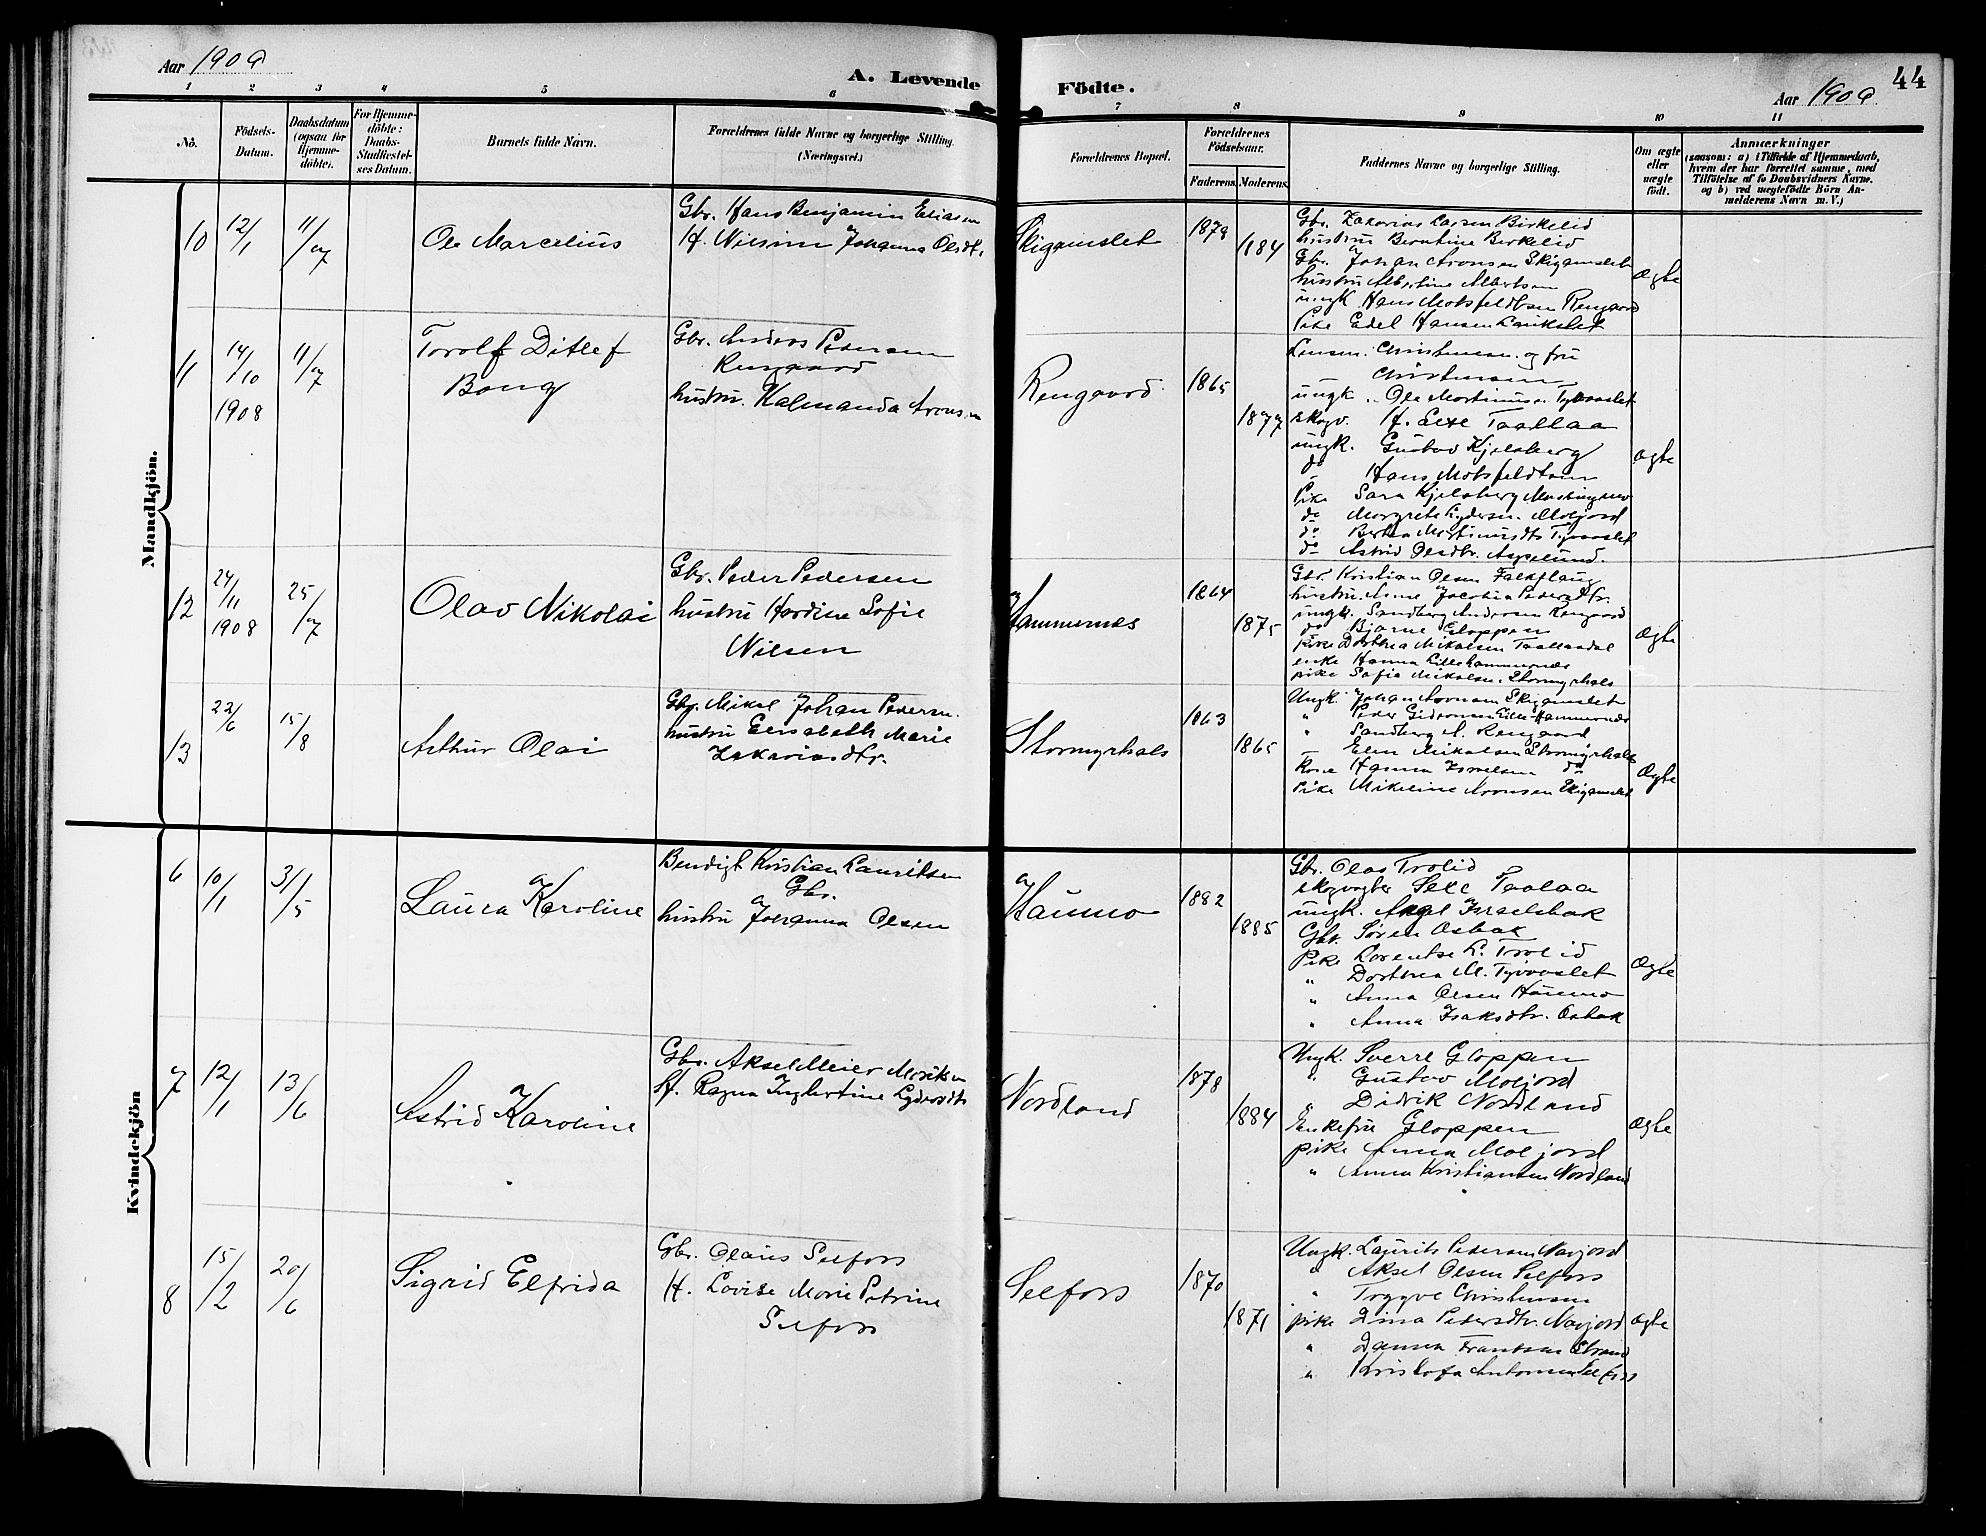 Aar 1909
A. Levende
Födte.
Aar 1909.
44
1 2 3 4 5 6 7 8 9 10 11
No.
Födsels-
Datum.
Daabsdatum
(ogsaa for
Hjemme-
döbte).
For Hjemme-
döbte:
Daabs-
Stadfæstel-
ses Datum.
Barnets fulde Navn.
Forældrenes fulde Navne og borgerlige Stilling
(Næringsvei.)
Forældrenes Bopæl.
Forældrenes
Födselsaar.
Faderens. Moderens.
Faddernes Navne og borgerlige Stilling.
Om ægte
eller
uægte
født.
Anmærkninger
(saasom: a) i Tilfælde af Hjemmedaab,
hvem der har forrettet samme, med
Tilföielse af to Daabsvidners Navne.
og b) ved uægtefödte Börn An-
melderens Navn m. V.)
Mandkjön.
10
12/1
11/7
Ole Marcelius
Gbr. Hans Benjamin Eliasen
H. Nilsine Johanna Olsdtr.
Skigamslet
1879
1884
Gbr. Zakarias Larsen Birkelid
hustru Berntine Birkelid
Gbr. Johan Aronsen Skigamslet
hustru Albertine Albertsen
ungk Hans Motsfeldtsen Rengaard
Pike Edel Hansen
ægte
11
14/10
1908
11/7
Torolf Ditlef
Bong
Gbr. Anders Pedersen
Rengaard
hustru. Halmanda Aronsen
Rengaard.
1865
1877
Lensm. Christensen og fru
Christensen
ungk. Ole Martinusen Tyvaaslet
skogv. H. Sexe Taallaa
ungk. Gustav Kjelsberg
do Hans Motsfeldtsen
Pike Sara Kjelsberg
do Margrete Lydersen. Moljord
do Berthea Martinusdtr Tyvaaslet
do Astrid Olsdtr. Aspelund.
ægte
12
24/11
1908
25/7
Olav Nikolai
Gbr. Peder Pedersen
hustru Hardine Sofie
Nilsen
Hammernes
1864
1875
Gbr. Kristian Olsen Falkflaug
hustru Anne Jacobia Pedersdtr.
ungk. Sandberg Andersen Rengaard
do Bjarne Gloppen
pike Dorthea Mikalsen Taallaadal
enke Hanna Lillehammernes
pike Sofie Mikalsen. Stormyrhals
Ægte
13
22/6
15/8
Arthur Olai
Gbr. Mikal Johan Pedersen.
hustru Elisabeth Marie
Zakariasdtr.
Stormyrhals
1863
1865
Ungk. Johan Aronsen Skigamslet
" Peder Gideonsen Lille-Hammernes
" Sandberg A. Rengaard
Elen Mikalsen Stormyrhals
Kone Hanna Israelsen do
Pike Mikeline Aronsen Skigamslet
Ægte
Kvindekjön
6
10/1
31/5
Laura Karoline
Bendigt Kristian Lauritsen
Gbr.
hustru Johanna Olsen
Haumo
1882
1885
Gbr. Olav Trolid
skogvogter Sexe Taalaa
ungk. Aksel Israelsbak
Gbr. Søren Osbak
Pike Lorentse L. Trolid
" Dorthea M. Tyvaaslet
" Anna Olsen Haumo
" Anna Isaksdtr. Osbak
Ægte
7
12/1
13/6
Astrid Karoline
Gbr. Aksel Meier
H. Ragna Ingbertine Lydersdtr
Nordland
1878
1884
Ungk. Sverre Gloppen
" Gustav Moljord
" Didrik Nordland
Enkefru Gloppen
pike Anna Moljord
" Anna Kristiansen Nordland
Ægte
8
15/2
20/6
Sigrid Elfrida
Gbr. Olaus Selfors
H. Lovise Marie Petrine
Selfors
Selfors
1870
1871
Ungk. Laurits Pedersen Navjord
" Aksel Olsen Selfors
" Trygve Christensen
pike Dina Pedersdtr. Navjord
" Danna Frantsen Strand
" Kristofa Antonsen Selfors
ægte